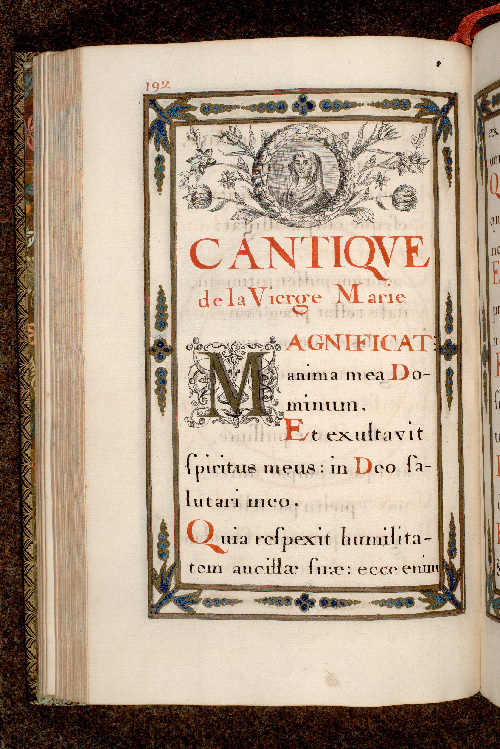 192
CANTIQVE
de la Vierge Marie
MAGNIFICAT:
anima mea Do-
minum.
Et exultavit
ſpiritus meus: in Deo ſa-
lutari meo.
Quia reſpexit humilita-
tem ancillæ ſuæ: ecce enim